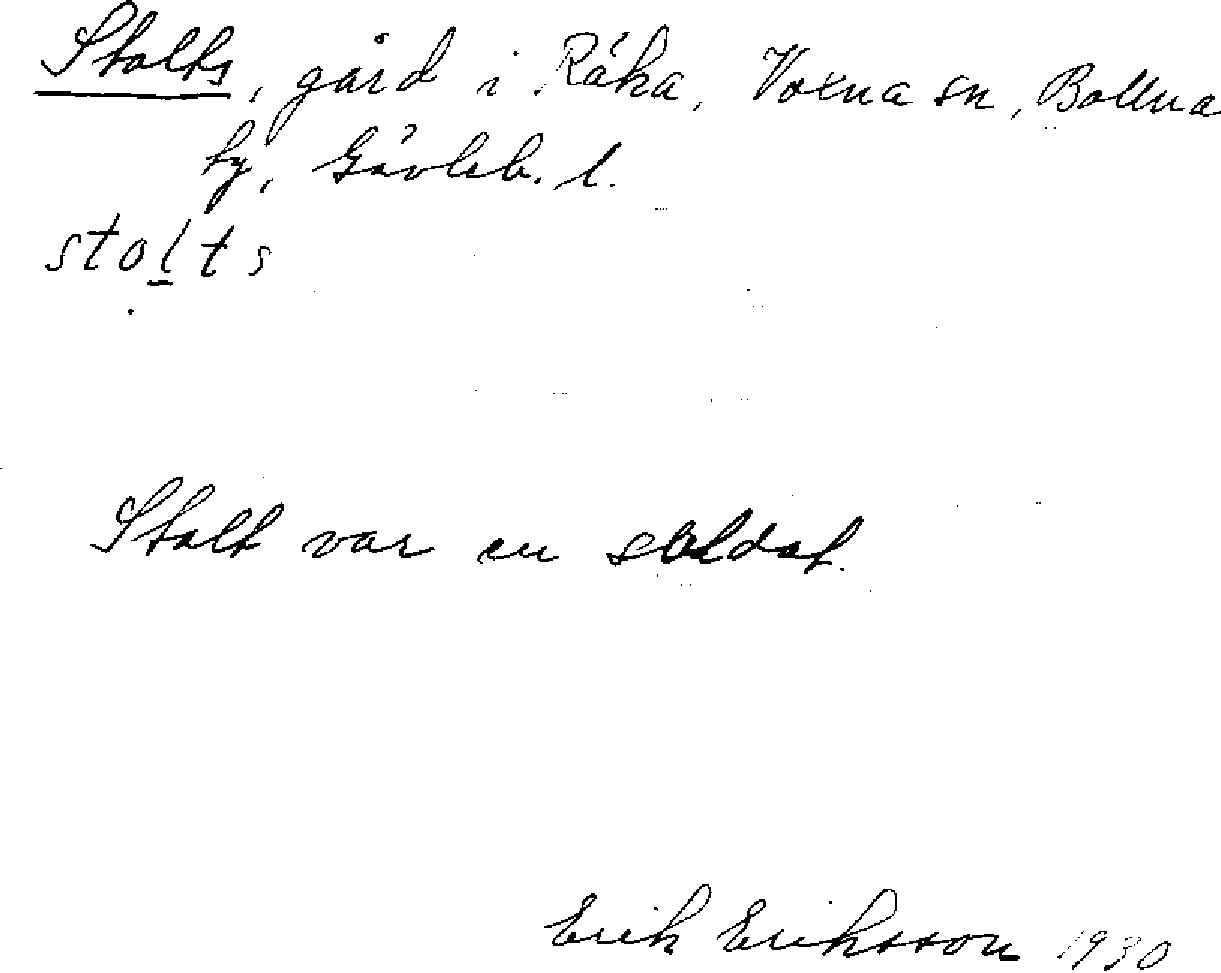 Stolts, gård i Råka, Voxna sn, Bollna
Gävleb. l.
stolts
Stolt var en soldat.
Erik Eriksson 1930